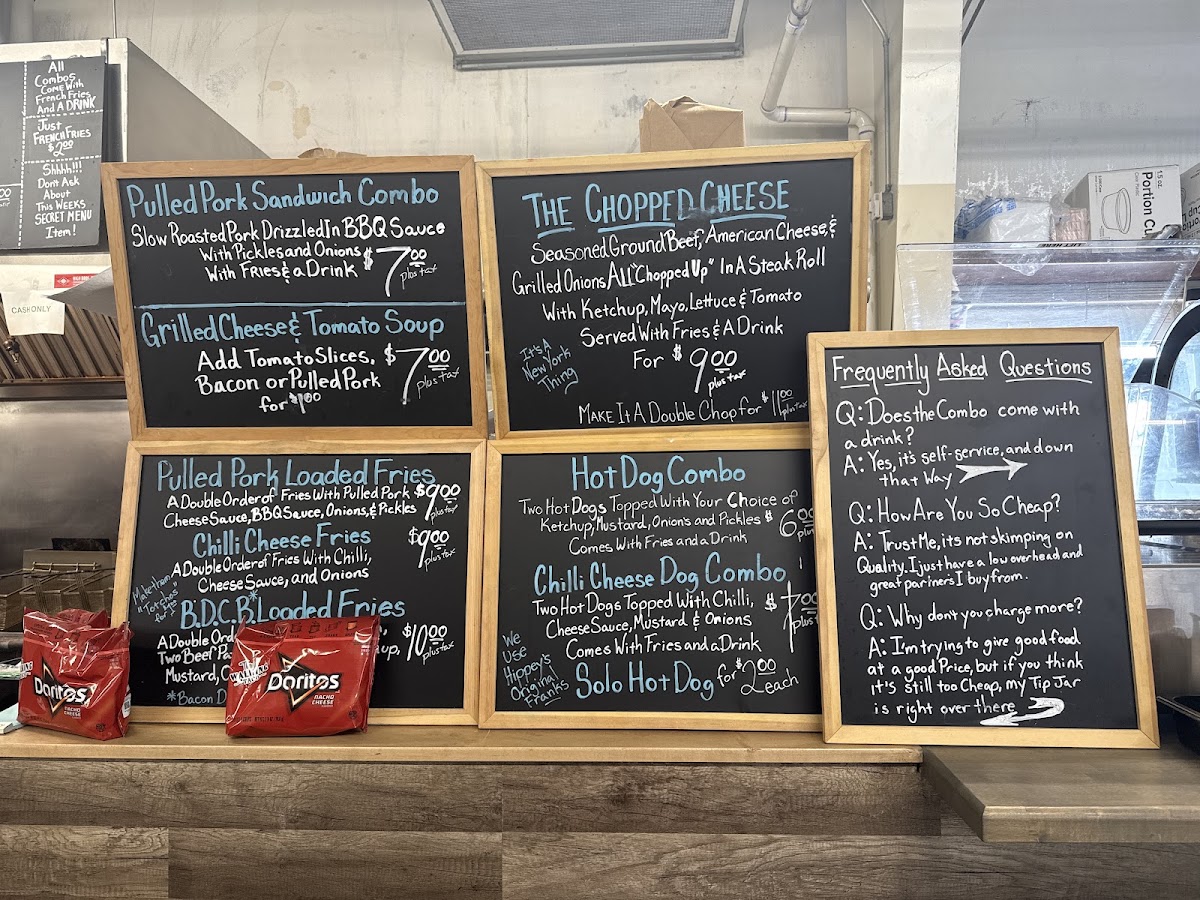 All
Combos
Come With
French Fries
And A DRINK
Just
FRENCH FRIES
$2.00
Shhhh!!!
Don't Ask
About
This Weeks
SECRET MENU
Item!
CASH ONLY
Pulled Pork Sandwich Combo
Slow Roasted Pork Drizzled In BBQ Sauce
With Pickles and Onions
With Fries & a Drink $7.00
plus tax
Grilled Cheese & Tomato Soup
Add Tomato Slices,
Bacon or Pulled Pork
for $1.00
$7.00
plus tax
THE CHOPPED CHEESE
Seasoned Ground Beef, American Cheese, &
Grilled Onions ALL "Chopped Up" In A Steak Roll
With Ketchup, Mayo, Lettuce & Tomato
Served With Fries & A Drink
For $9.00
plus tax
It's A
New York
Thing
Make It A Double Chop for $11.00
plus tax
Pulled Pork Loaded Fries
A Double Order of Fries With Pulled Pork $9.00
Cheese Sauce, BBQ Sauce, Onions, & Pickles plus tax
Chilli Cheese Fries $9.00
plus tax
A Double Order of Fries With Chilli,
Cheese Sauce, and Onions
Make them
B.D.C.B.* Loaded Fries
A Double
Two Beef
Mustard,
$10.00
plus tax
*Bacon
Hot Dog Combo
Two Hot Dogs Topped With Your Choice of
Ketchup, Mustard, Onions and Pickles $6.00
Comes With Fries and a Drink
Chilli Cheese Dog Combo
Two Hot Dogs Topped With Chilli, $7.00
Cheese Sauce, Mustard & Onions
Comes With Fries and a Drink
We
Use
Hippey's
Original
Franks
Solo Hot Dog for $2.00
each
Frequently Asked Questions
Q: Does the Combo come with
a drink?
A: Yes, it's self-service, and down
that Way
Q: How Are You So Cheap?
A: Trust Me, its not skimping on
Quality. I just have a low overhead and
great partners I buy from.
Q: Why don't you charge more?
A: I'm trying to give good food
at a good Price, but if you think
it's still too Cheap, my Tip Jar
is right over there
Doritos
WALKING
Doritos
NACHO
CHEESE
15 oz.
Portion Cu